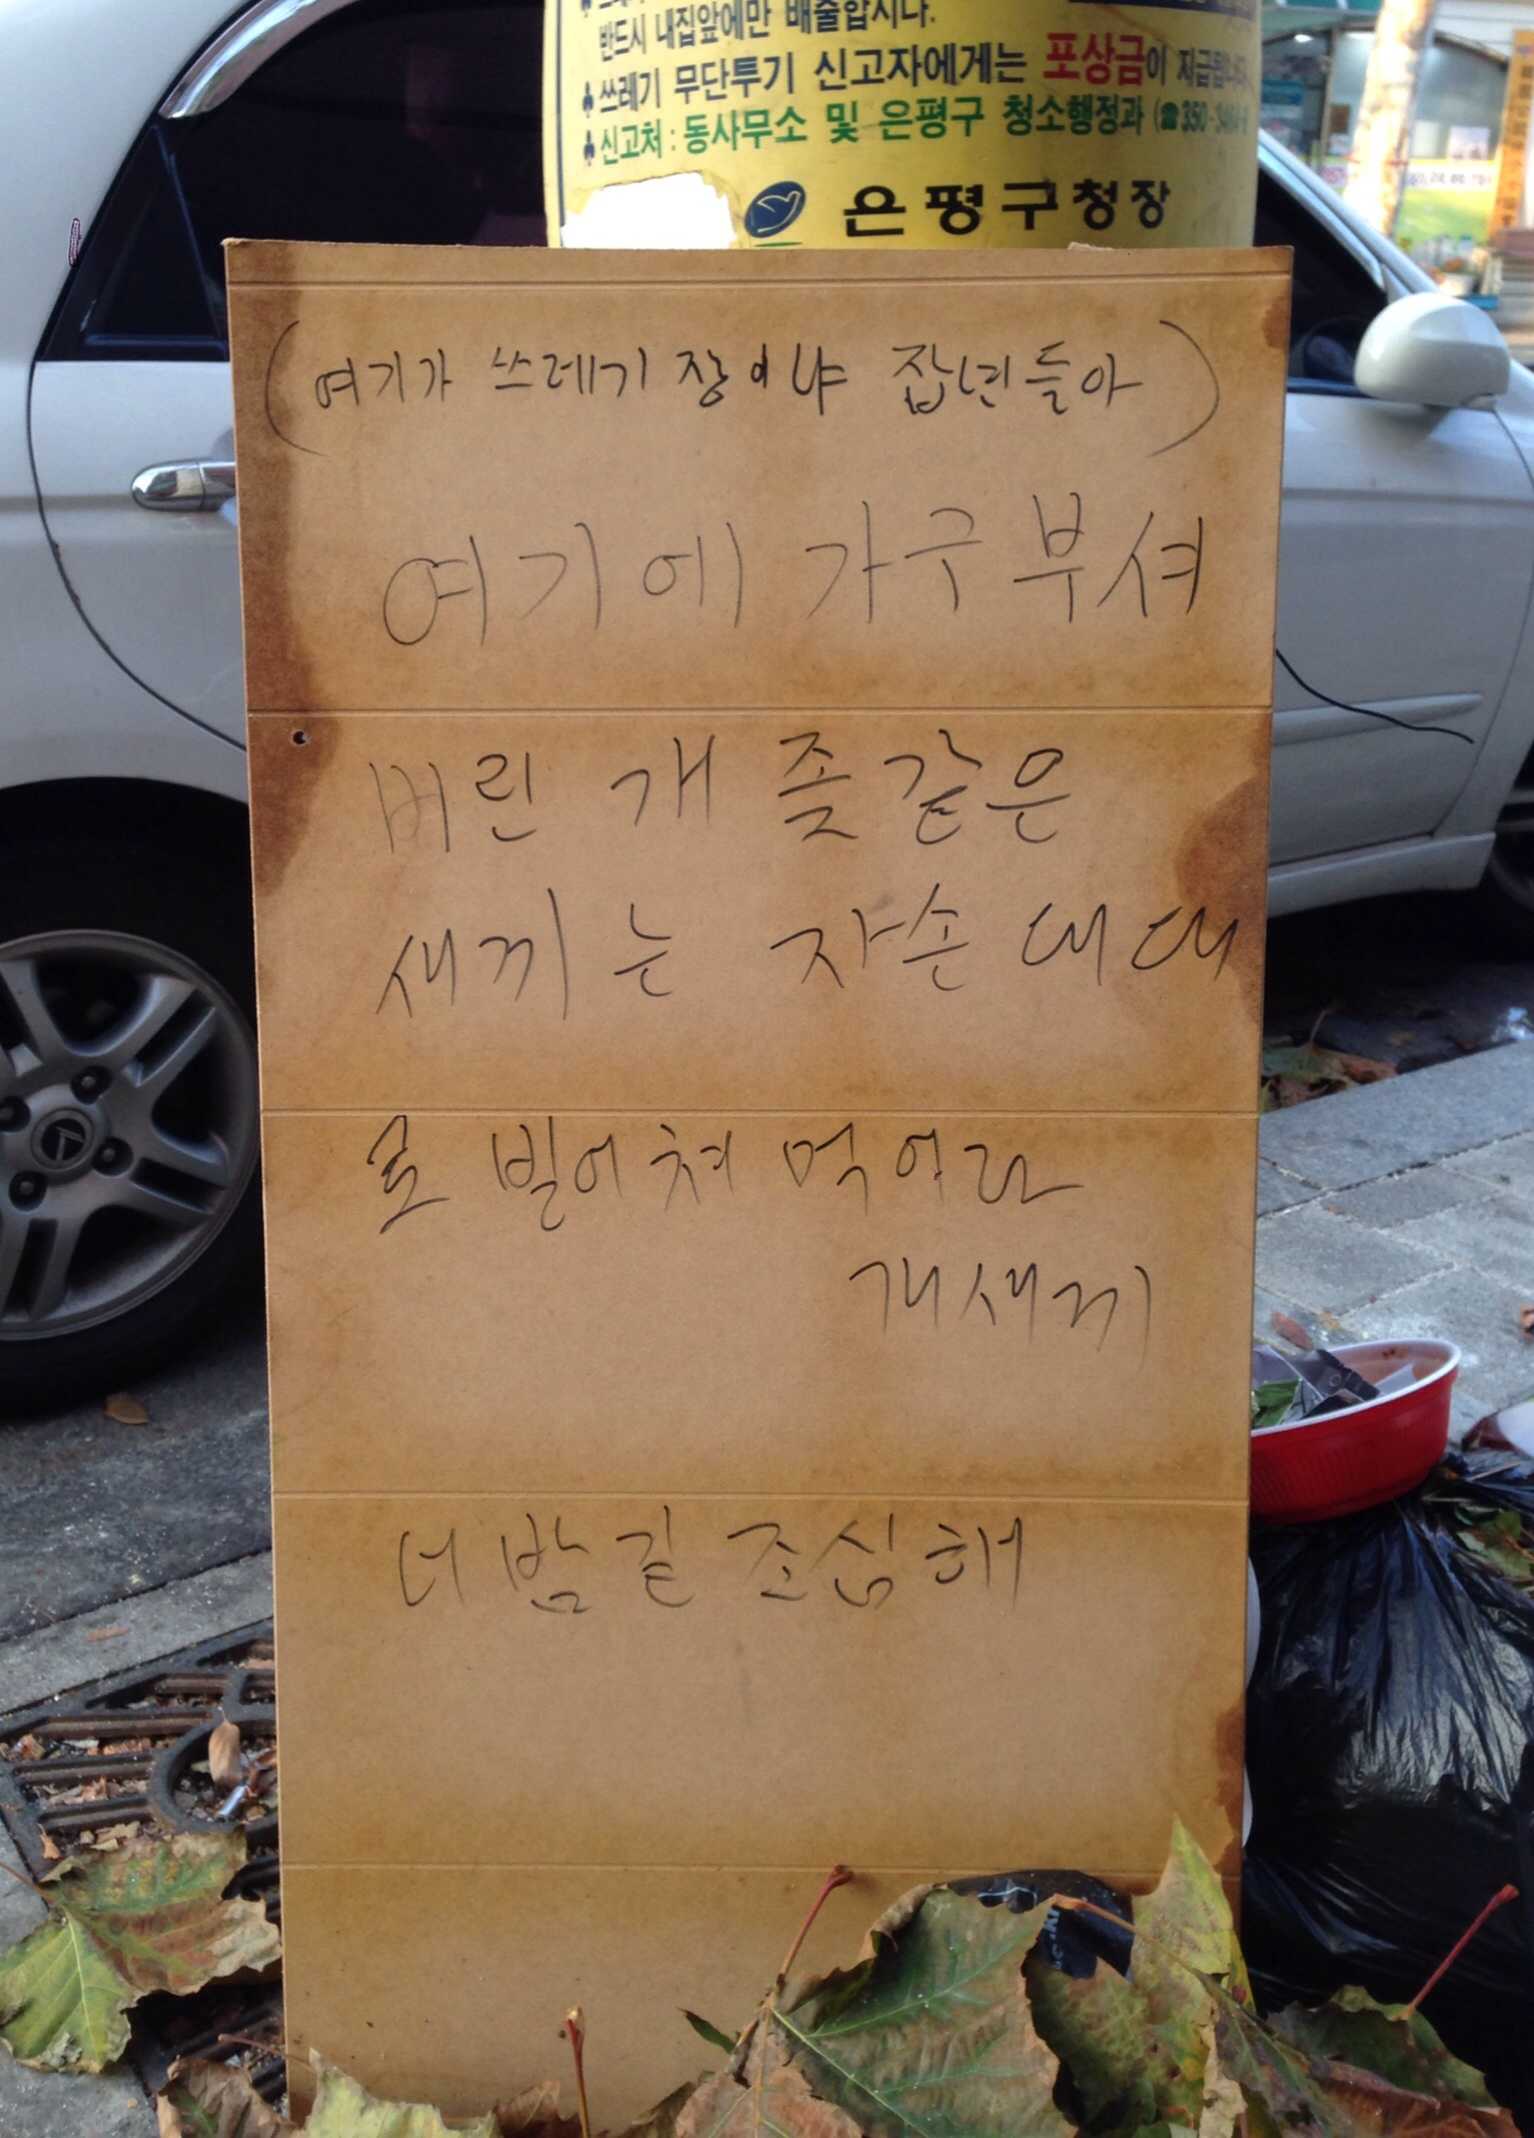 반드시 내집앞에만 배출합시다.
쓰레기 무단투기 신고자에게는 포상금이 지급됩니다
신고처 : 동사무소 및 은평구 청소행정과 (☎350-
은평구청장
(여기가 쓰레기 장이냐 잡년들아)
여기에 가구부셔
버린 개 좆같은
새끼는 자손대대
로 빌어쳐 먹어라
개새끼
너 밤길 조심해